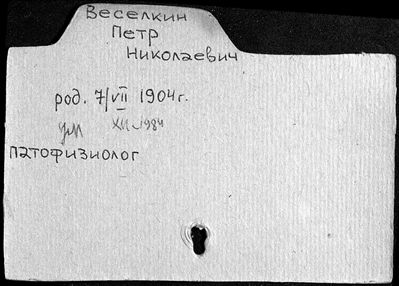 Веселкин
Петр
Николаевич
род. 7/VII 1904 г.
ум XII-1984
патофизиолог